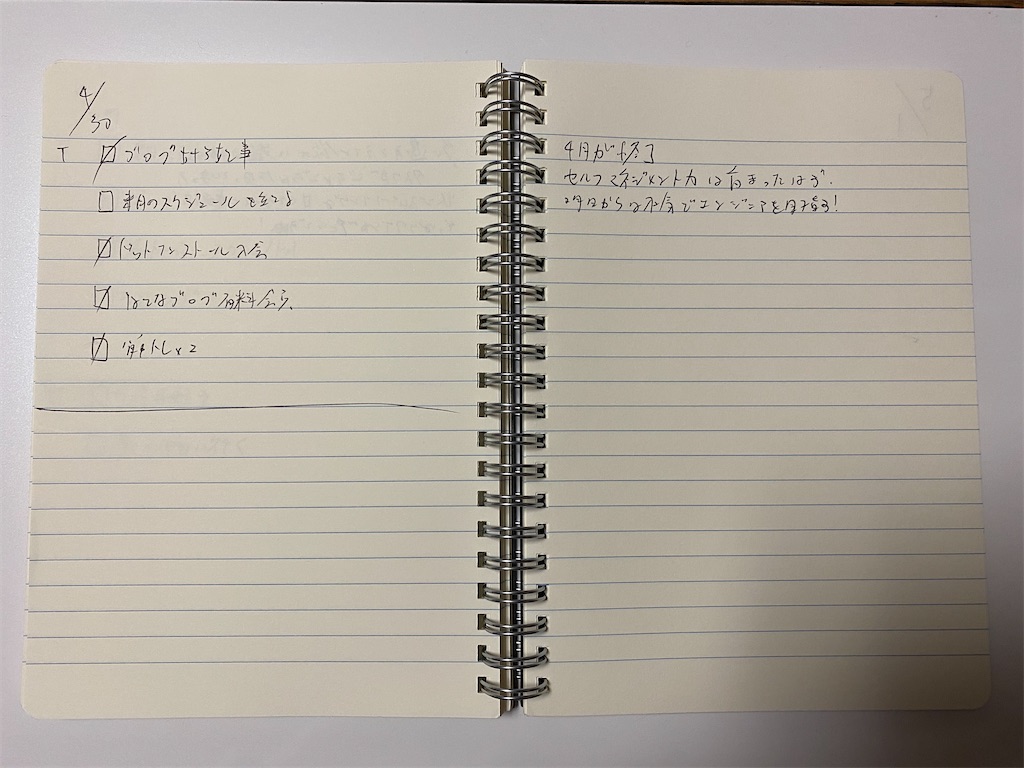 4/30
T ブログ 記事
来月のスケジュールを立てる
ドットインストール入会
はてなブログ有料会員
筋トレ×2
4月が終了
セルフマネジメント力は高まったはず.
明日からは本気でエンジニアを目指す!